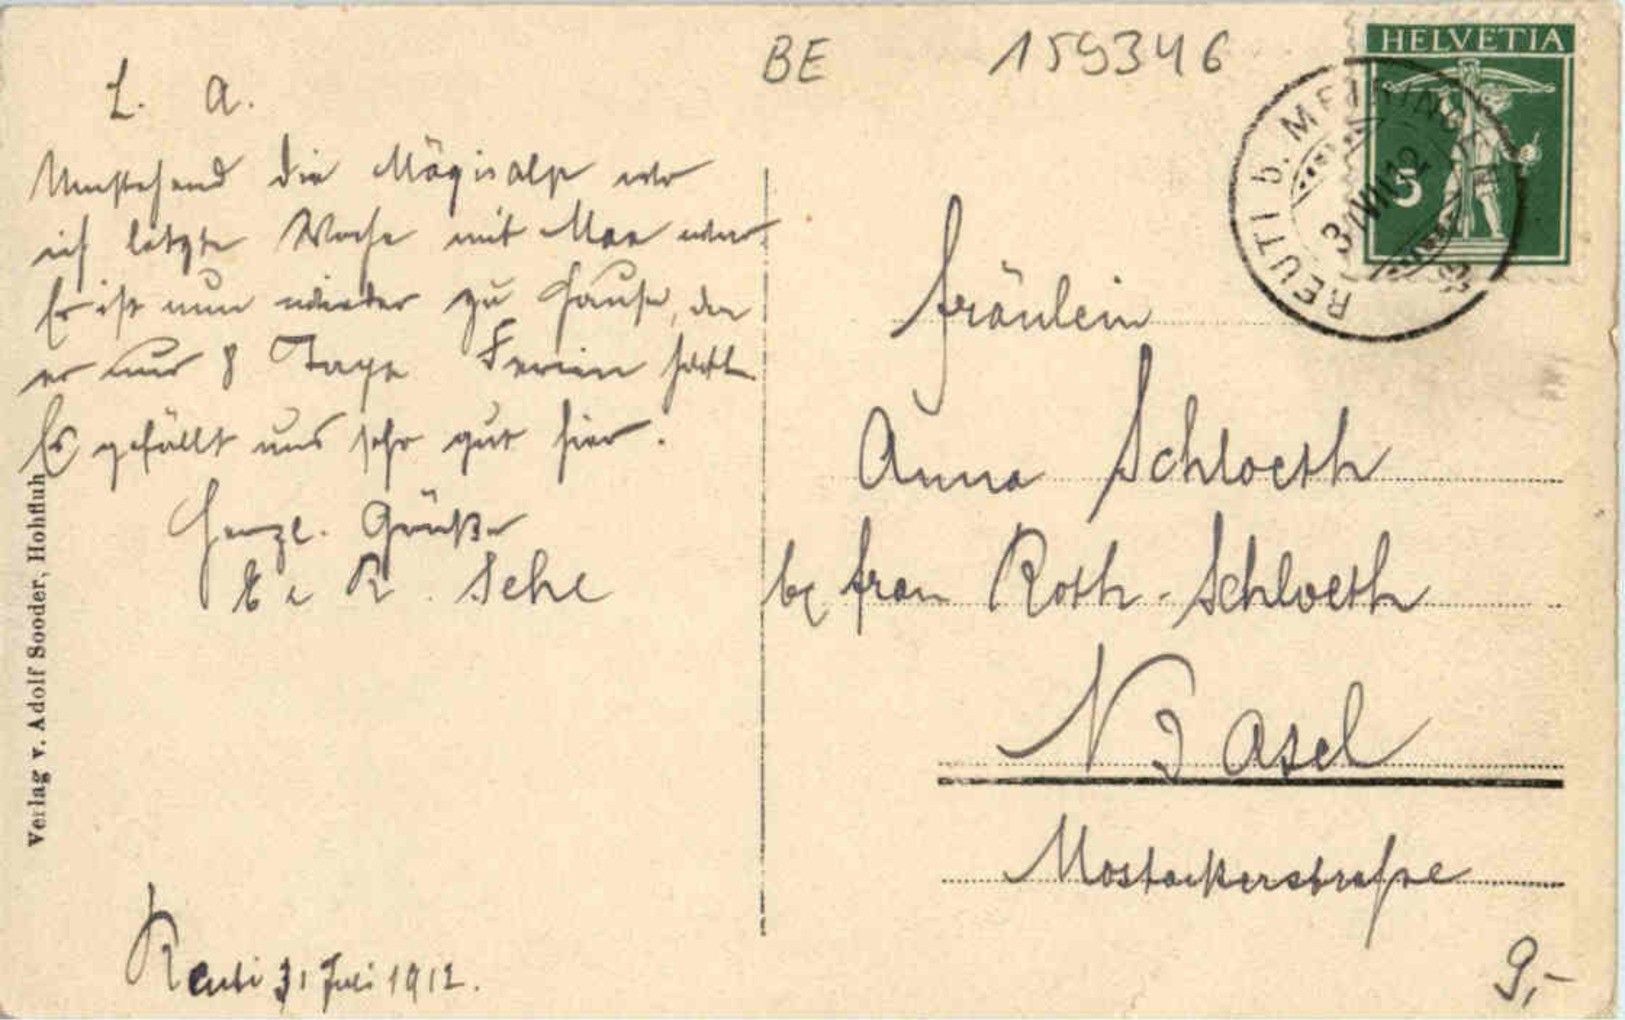 BE 159346
HELVETIA
5
REUTI b. MEIRINGEN
31 VII 12
L. A.
Umstehend die Mägisalp wo
ich letzte Woche mit Max war.
Er ist nun wieder zu Hause, da
er nur 8 Tage Ferien hatte.
Es gefällt uns sehr gut hier.
Herzl. Grüße
R.
Reuti 31 Juli 1912.
Verlag v. Adolf Sooder, Hohfluh
Fräulein
Anna Schloeth
bei Frau Roth-Schloeth
Basel
Mostackerstrasse
9,-